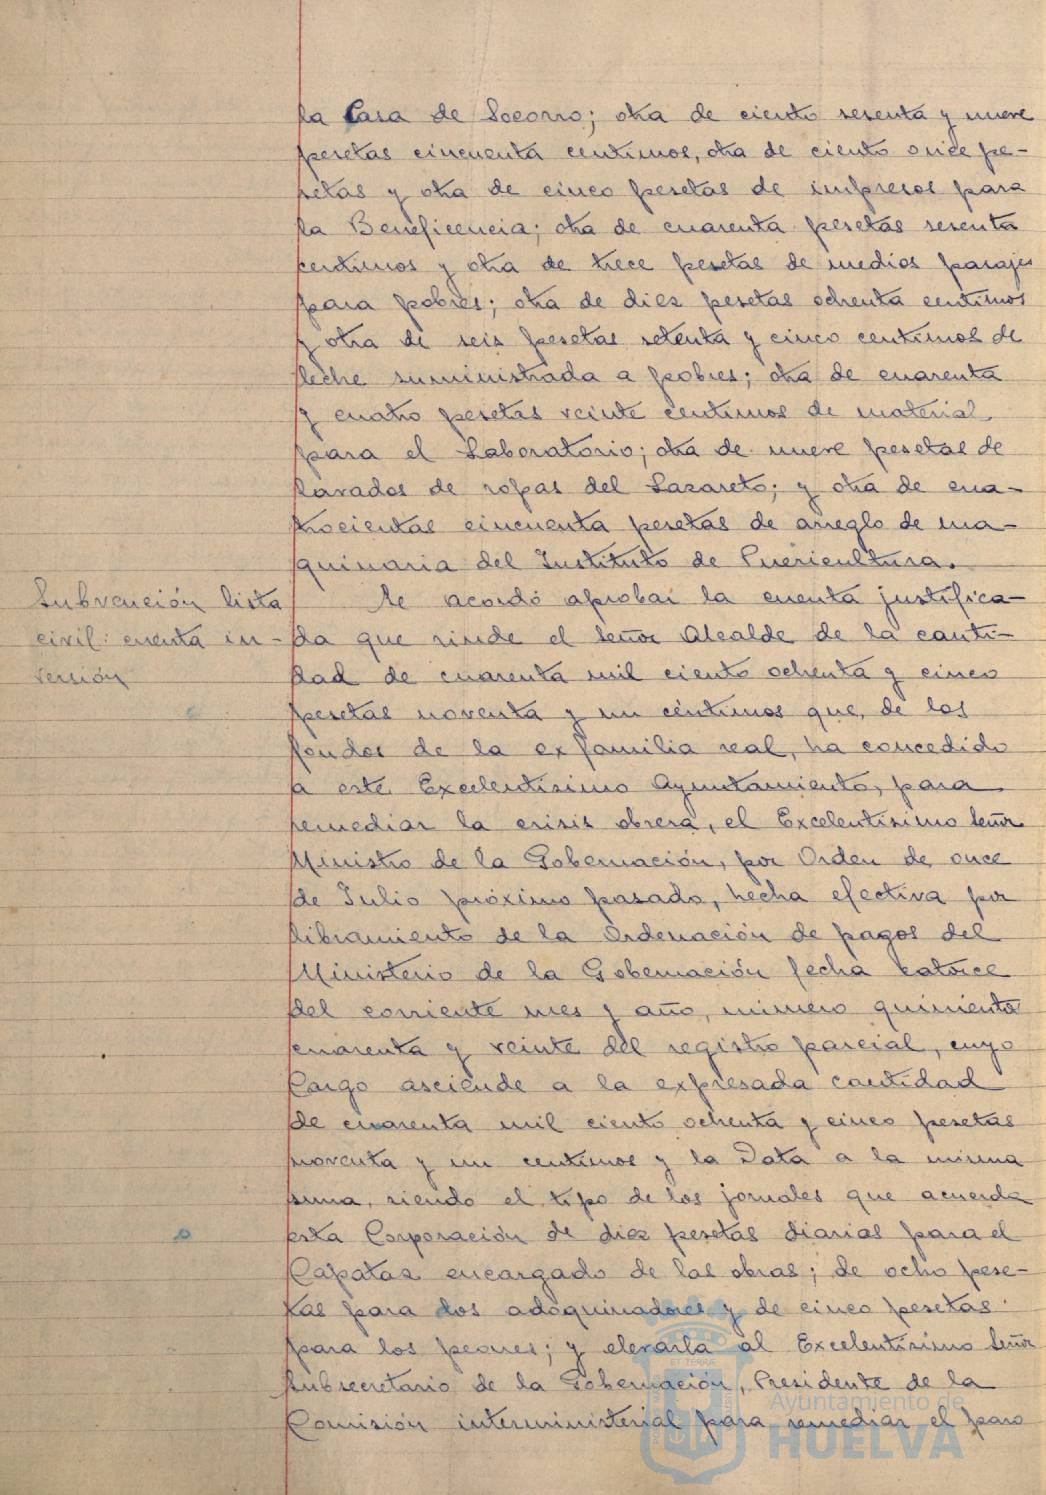 la Casa de Socorro; otra de ciento sesenta y nueve
pesetas cincuenta centimos, otra de ciento once pe-
setas y otra de cinco pesetas de impresos para
la Beneficencia; otra de cuarenta pesetas sesenta
centimos y otra de trece pesetas de medios pasajes
para pobres; otra de diez pesetas ochenta centimos
y otra de seis pesetas setenta y cinco centimos de
leche suministrada a pobres; otra de cuarenta
y cuatro pesetas veinte centimos de material
para el Laboratorio; otra de nueve pesetas de
lavados de ropas del Lazareto; y otra de cua-
trocientas cincuenta pesetas de arreglo de ma-
quinaria del Instituto de Puericultura.
Subvención lista
civil: cuenta in-
versión
Se acordó aprobar la cuenta justifica-
da que rinde el señor Alcalde de la canti-
dad de cuarenta mil ciento ochenta y cinco
pesetas noventa y un céntimos que, de los
fondos de la ex familia real, ha concedido
a este Excelentisimo Ayuntamiento, para
remediar la crisis obrera, el Excelentisimo Señor
Ministro de la Gobernación, por Orden de once
de Julio próximo pasado, hecha efectiva por
libramiento de la Ordenación de pagos del
Ministerio de la Gobernación fecha catorce
del corriente mes y año, número quinientos
cuarenta y veinte del registro parcial, cuyo
Cargo asciende a la expresada cantidad
de cuarenta mil ciento ochenta y cinco pesetas
noventa y un centimos y la Data a la misma
suma, siendo el tipo de los jornales que acuerda
esta Corporación de diez pesetas diarias para el
Capataz encargado de las obras; de ocho pese-
tas para dos adoquinadores y de cinco pesetas
para los peones; y elevarla al Excelentísimo Señor
Subsecretario de la Gobernación, Presidente de la
Comisión interministerial para remediar el paro
ET TERRA
Ayuntamiento de
HUELVA